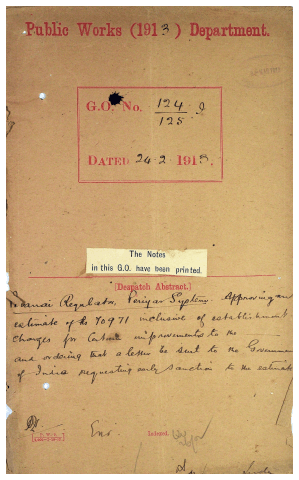 Public Works (1913) Department.
G.O. No. 124
125 I
DATED 24-2-1913.
The Notes
in this G.O. have been printed.
(Despatch Abstract.)
Peranai Regulator, Periyar System - Approving an
estimate of Rs 70971 inclusive of establishment
charges for improvements to the
and ordering that a letter be sent to the Government
of India requesting early sanction to the estimate
Indexed.